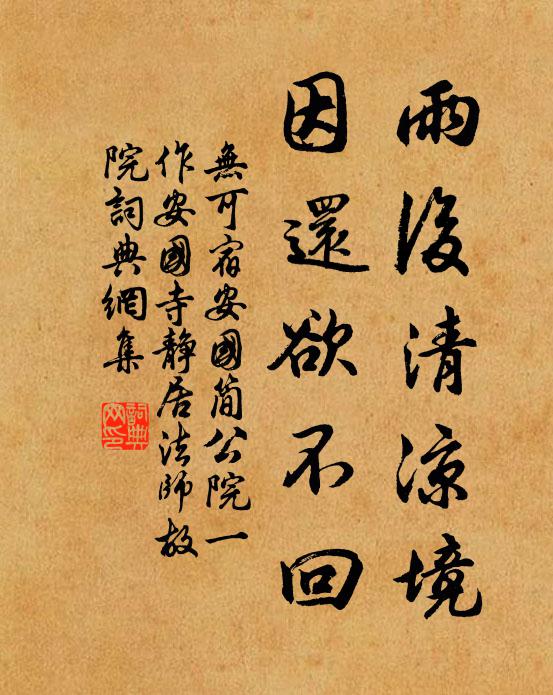 雨後清涼境
因還欲不回
無可宿安國簡公院一
作安國寺靜居法師故
院詞典網集
詞典網印